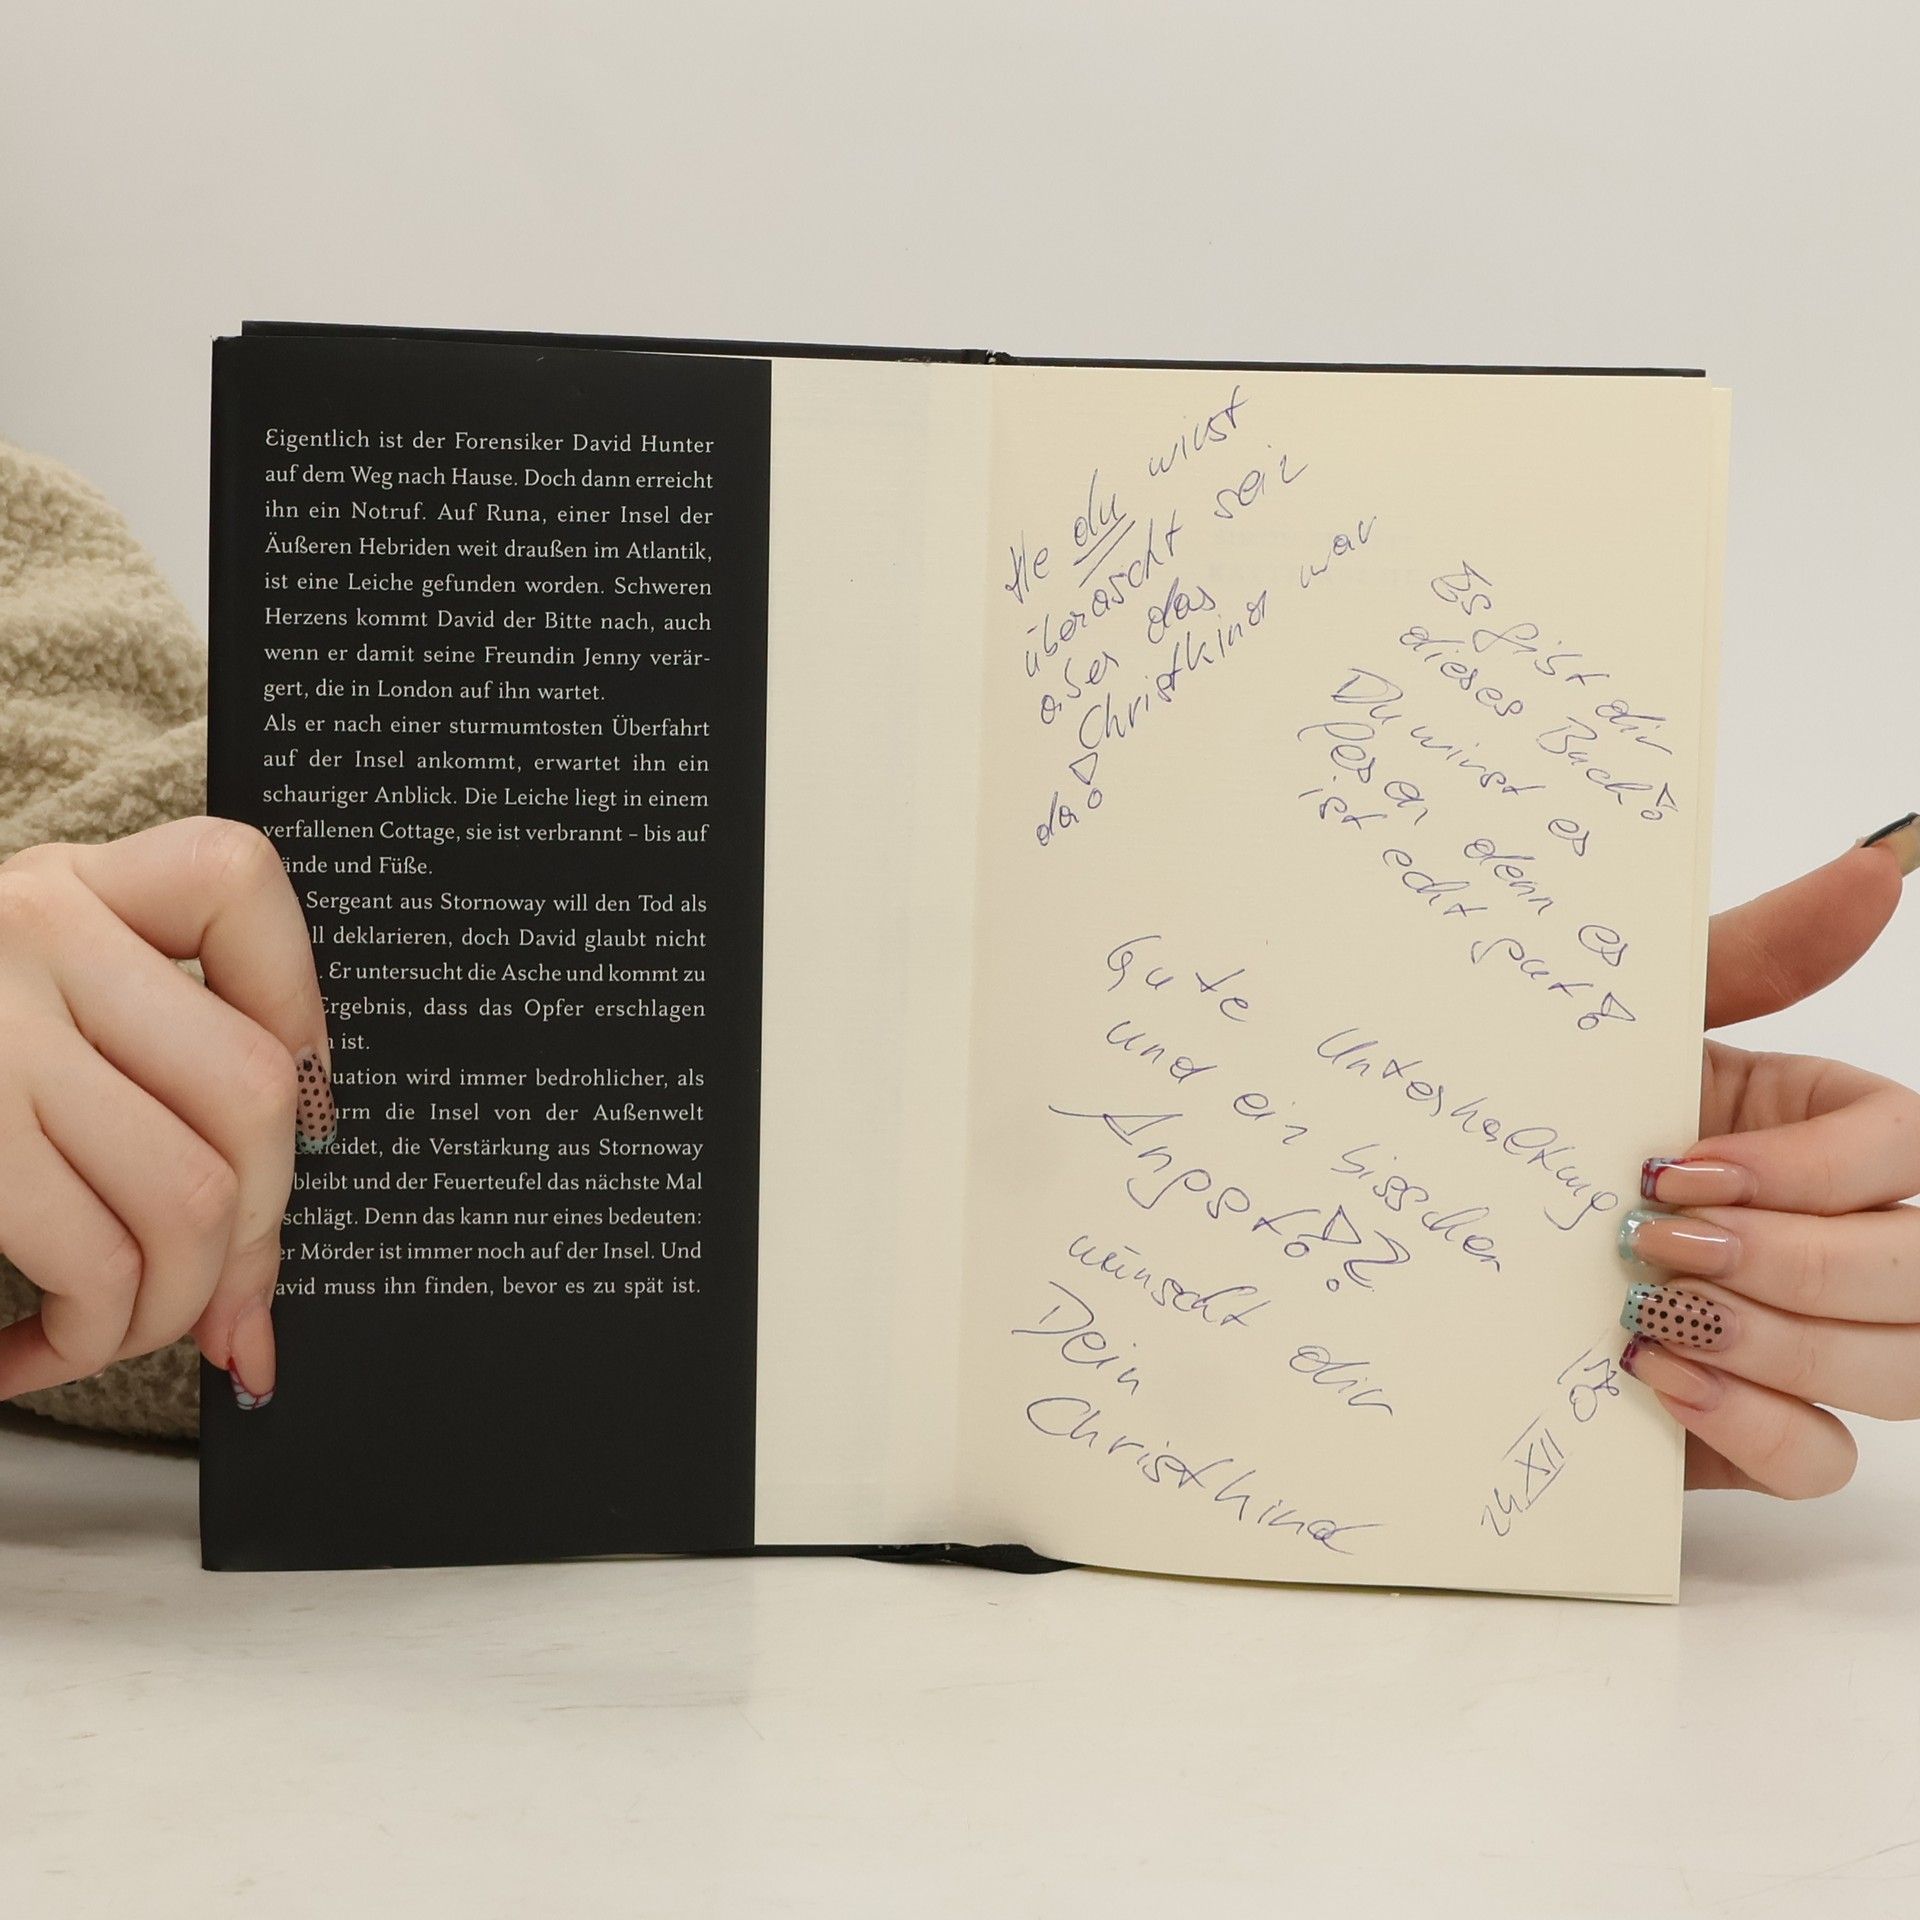 Eigentlich ist der Forensiker David Hunter
auf dem Weg nach Hause. Doch dann erreicht
ihn ein Notruf. Auf Runa, einer Insel der
Äußeren Hebriden weit draußen im Atlantik,
ist eine Leiche gefunden worden. Schweren
Herzens kommt David der Bitte nach, auch
wenn er damit seine Freundin Jenny verär-
gert, die in London auf ihn wartet.
Als er nach einer sturmumtosten Überfahrt
auf der Insel ankommt, erwartet ihn ein
schauriger Anblick. Die Leiche liegt in einem
verfallenen Cottage, sie ist verbrannt – bis auf
ände und Füße.
Sergeant aus Stornoway will den Tod als
ll deklarieren, doch David glaubt nicht
. Er untersucht die Asche und kommt zu
Ergebnis, dass das Opfer erschlagen
n ist.
uation wird immer bedrohlicher, als
urm die Insel von der Außenwelt
neidet, die Verstärkung aus Stornoway
bleibt und der Feuerteufel das nächste Mal
schlägt. Denn das kann nur eines bedeuten:
er Mörder ist immer noch auf der Insel. Und
avid muss ihn finden, bevor es zu spät ist.
He du wirst
überascht sein
aber das
Christkind war
da!
Es gibt dir
dieses Buch!
Du wirst es
lesen denn es
ist echt gut!
Gute Unterhaltung
und ein bisschen
Angst!?
wünscht dir
Dein
Christkind
24 XII